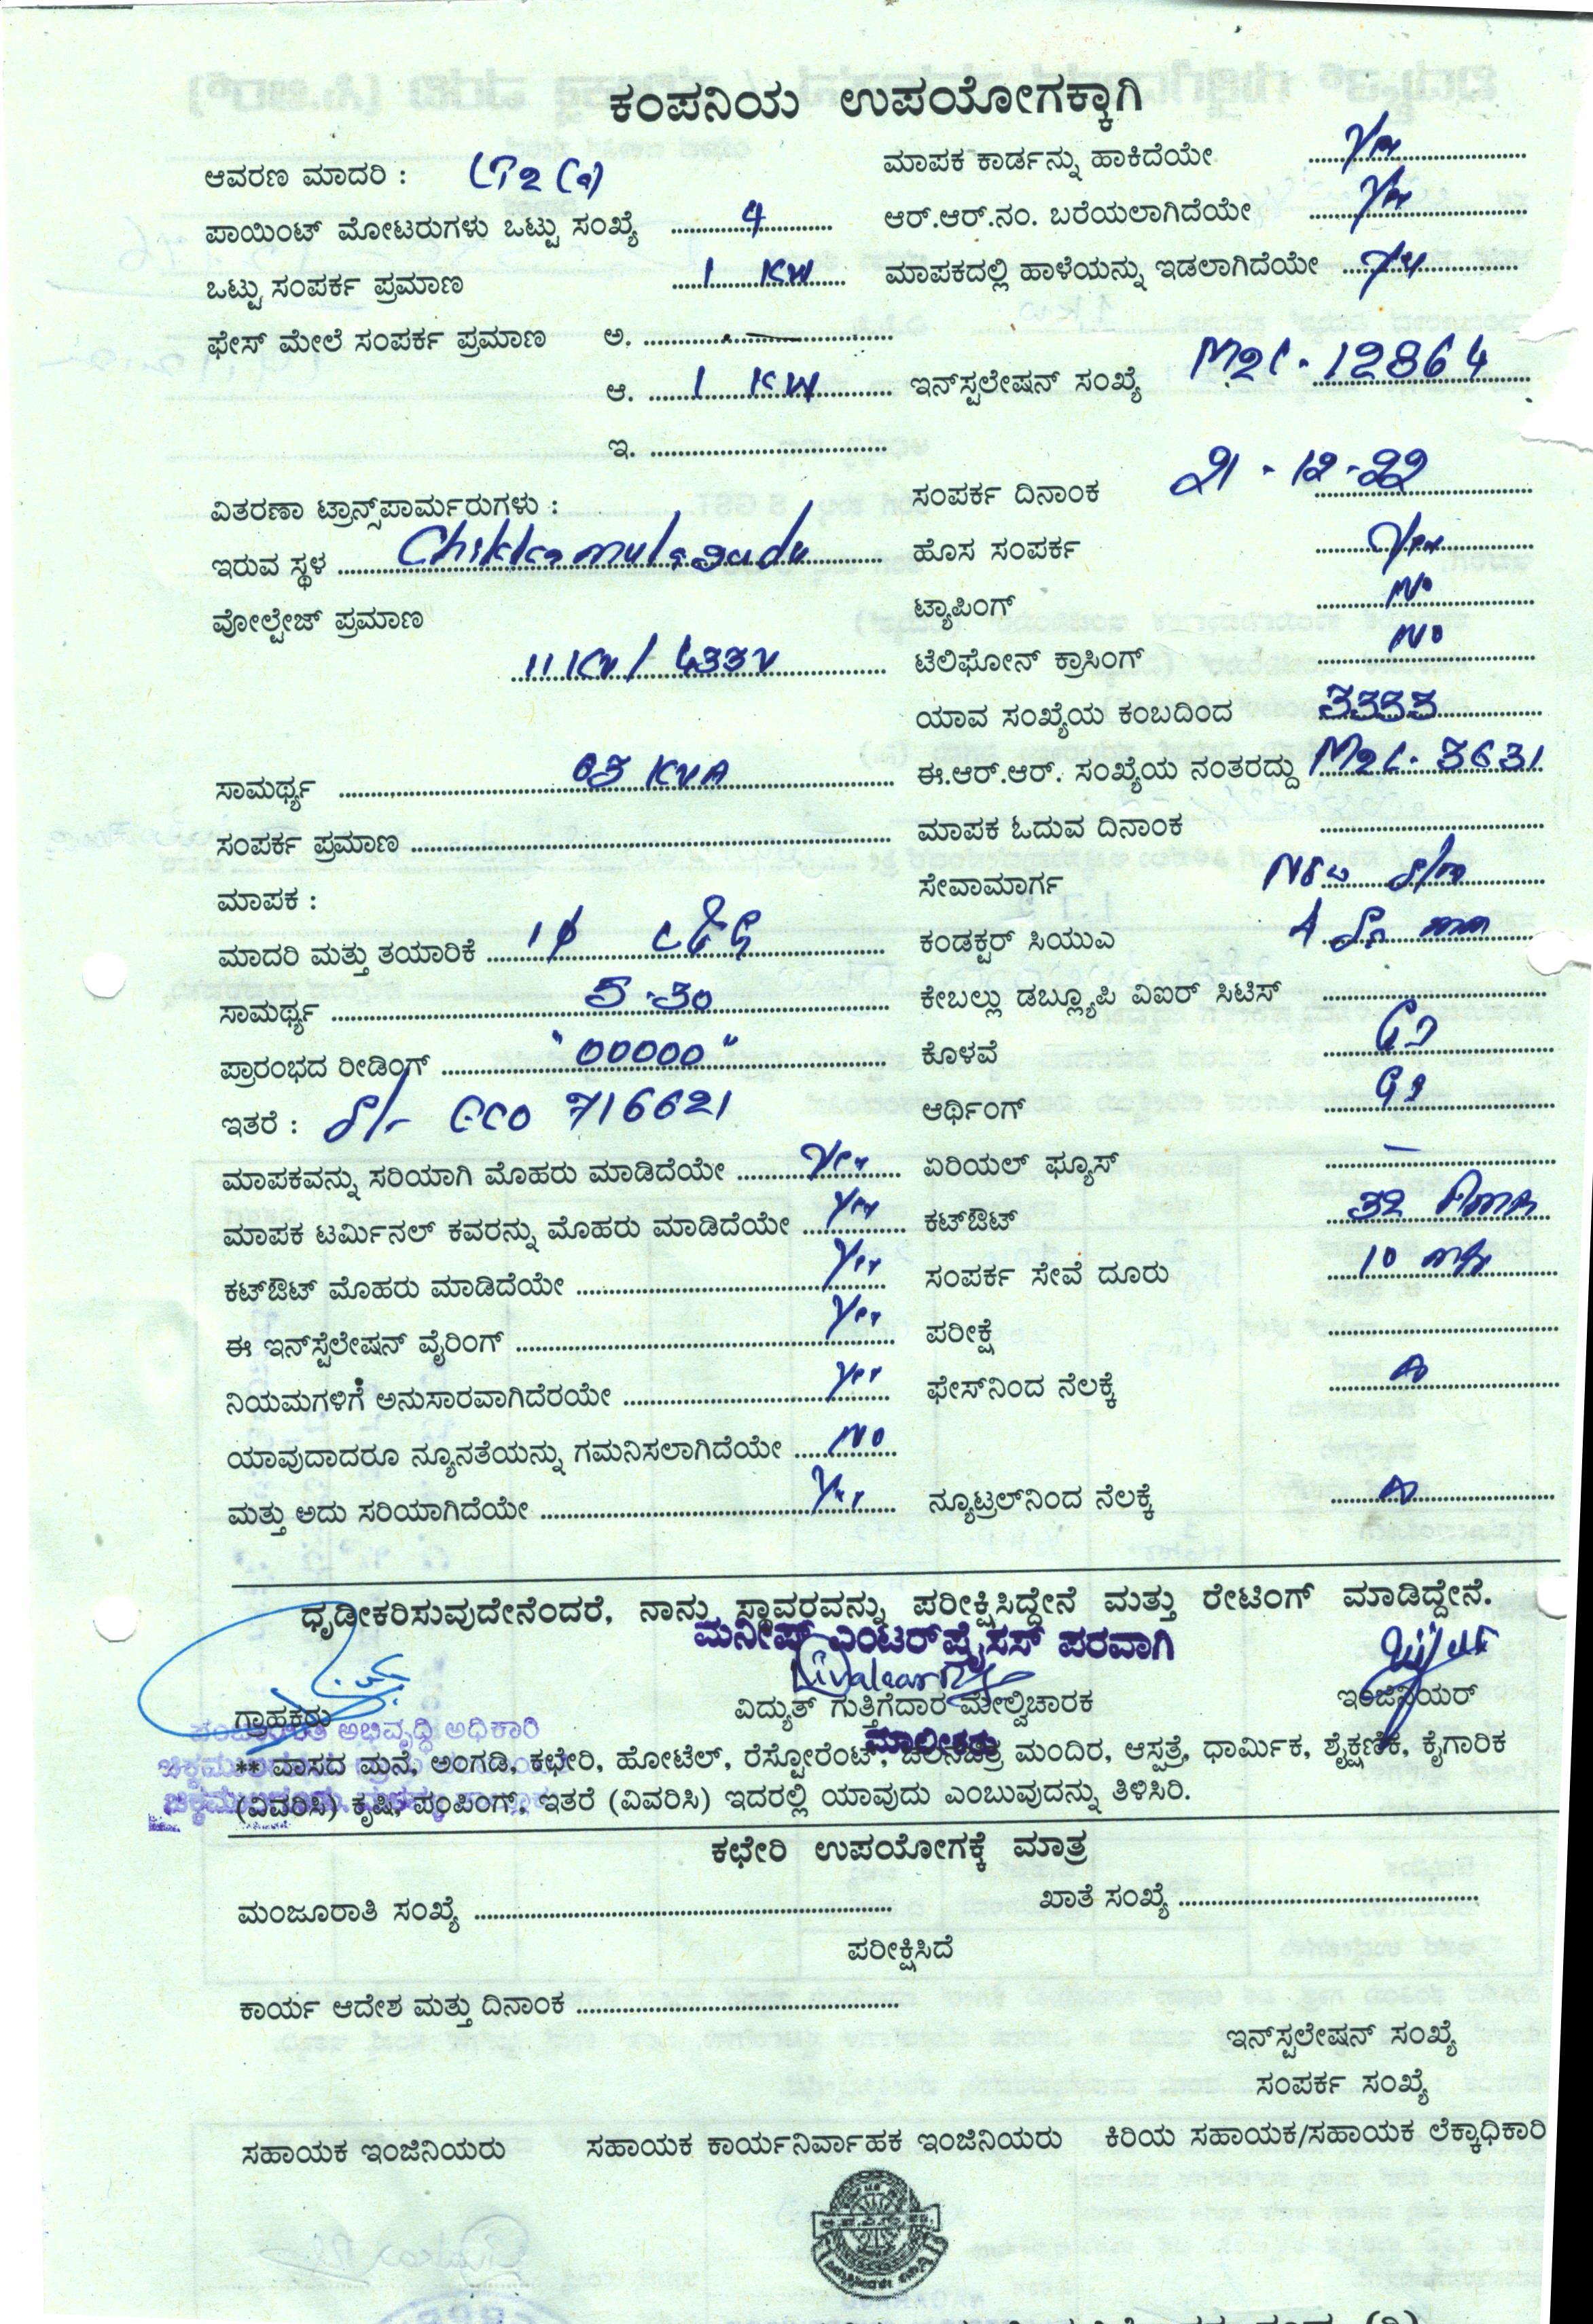 ಕಂಪನಿಯ ಉಪಯೋಗಕ್ಕಾಗಿ
ಆವರಣ ಮಾದರಿ : LT2(a) ಮಾಪಕ ಕಾರ್ಡನ್ನು ಹಾಕಿದೆಯೇ Yes
ಪಾಯಿಂಟ್ ಮೋಟರುಗಳು ಒಟ್ಟು ಸಂಖ್ಯೆ 4 ಆರ್.ಆರ್.ನಂ. ಬರೆಯಲಾಗಿದೆಯೇ Yes
ಒಟ್ಟು ಸಂಪರ್ಕ ಪ್ರಮಾಣ 1 KW ಮಾಪಕದಲ್ಲಿ ಹಾಳೆಯನ್ನು ಇಡಲಾಗಿದೆಯೇ
ಫೇಸ್ ಮೇಲೆ ಸಂಪರ್ಕ ಪ್ರಮಾಣ ಅ. —
ಆ. 1 KW ಇನ್‌ಸ್ಟಲೇಷನ್ ಸಂಖ್ಯೆ M2L-12864
ಇ.
ವಿತರಣಾ ಟ್ರಾನ್ಸ್‌ಪಾರ್ಮರುಗಳು : ಸಂಪರ್ಕ ದಿನಾಂಕ 21-12-22
ಇರುವ ಸ್ಥಳ Chikkamulagudu ಹೊಸ ಸಂಪರ್ಕ Yes
ವೋಲ್ಟೇಜ್ ಪ್ರಮಾಣ ಟ್ಯಾಪಿಂಗ್ No
11KV/433V ಟೆಲಿಫೋನ್ ಕ್ರಾಸಿಂಗ್ No
ಯಾವ ಸಂಖ್ಯೆಯ ಕಂಬದಿಂದ
ಸಾಮರ್ಥ್ಯ KVA ಈ.ಆರ್.ಆರ್. ಸಂಖ್ಯೆಯ ನಂತರದ್ದು M2L-5631
ಸಂಪರ್ಕ ಪ್ರಮಾಣ ಮಾಪಕ ಓದುವ ದಿನಾಂಕ
ಮಾಪಕ : ಸೇವಾಮಾರ್ಗ New
ಮಾದರಿ ಮತ್ತು ತಯಾರಿಕೆ 1φ L&G ಕಂಡಕ್ಟರ್ ಸಿಯುಎ 4 Sq mm
ಸಾಮರ್ಥ್ಯ 5-30 ಕೇಬಲ್ಲು ಡಬ್ಲ್ಯೂಪಿ ವಿಐರ್ ಸಿಟಿಸ್
ಪ್ರಾರಂಭದ ರೀಡಿಂಗ್ "00000" ಕೊಳವೆ GI
ಇತರೆ : 716621 ಆರ್ಥಿಂಗ್ GI
ಮಾಪಕವನ್ನು ಸರಿಯಾಗಿ ಮೊಹರು ಮಾಡಿದೆಯೇ Yes ಏರಿಯಲ್ ಫ್ಯೂಸ್ —
ಮಾಪಕ ಟರ್ಮಿನಲ್ ಕವರನ್ನು ಮೊಹರು ಮಾಡಿದೆಯೇ Yes ಕಟ್‌ಔಟ್ 32
ಕಟ್‌ಔಟ್ ಮೊಹರು ಮಾಡಿದೆಯೇ Yes ಸಂಪರ್ಕ ಸೇವೆ ದೂರು 10
ಈ ಇನ್‌ಸ್ಟೆಲೇಷನ್ ವೈರಿಂಗ್ Yes ಪರೀಕ್ಷೆ
ನಿಯಮಗಳಿಗೆ ಅನುಸಾರವಾಗಿದೆರಯೇ Yes ಫೇಸ್‌ನಿಂದ ನೆಲಕ್ಕೆ
ಯಾವುದಾದರೂ ನ್ಯೂನತೆಯನ್ನು ಗಮನಿಸಲಾಗಿದೆಯೇ No
ಮತ್ತು ಅದು ಸರಿಯಾಗಿದೆಯೇ Yes ನ್ಯೂಟ್ರಲ್‌ನಿಂದ ನೆಲಕ್ಕೆ
ಧೃಡೀಕರಿಸುವುದೇನೆಂದರೆ, ನಾನು ಸ್ಥಾವರವನ್ನು ಪರೀಕ್ಷಿಸಿದ್ದೇನೆ ಮತ್ತು ರೇಟಿಂಗ್ ಮಾಡಿದ್ದೇನೆ.
ಮನೀಷ್ ಎಂಟರ್‌ಪ್ರೈಸಸ್ ಪರವಾಗಿ
ಗ್ರಾಹಕರು ವಿದ್ಯುತ್ ಗುತ್ತಿಗೆದಾರ ಮೇಲ್ವಿಚಾರಕ ಇಂಜಿನಿಯರ್
ಪಂಚಾಯಿತಿ ಅಭಿವೃದ್ಧಿ ಅಧಿಕಾರಿ
ಮಾಲೀಕರು
** ವಾಸದ ಮನೆ, ಅಂಗಡಿ, ಕಛೇರಿ, ಹೋಟೆಲ್, ರೆಸ್ಟೋರೆಂಟ್, ಚಲನಚಿತ್ರ ಮಂದಿರ, ಆಸ್ಪತ್ರೆ, ಧಾರ್ಮಿಕ, ಶೈಕ್ಷಣಿಕ, ಕೈಗಾರಿಕ
(ವಿವರಿಸಿ) ಕೃಷಿ, ಪಂಪಿಂಗ್, ಇತರೆ (ವಿವರಿಸಿ) ಇದರಲ್ಲಿ ಯಾವುದು ಎಂಬುವುದನ್ನು ತಿಳಿಸಿರಿ.
ಕಛೇರಿ ಉಪಯೋಗಕ್ಕೆ ಮಾತ್ರ
ಮಂಜೂರಾತಿ ಸಂಖ್ಯೆ ಖಾತೆ ಸಂಖ್ಯೆ
ಪರೀಕ್ಷಿಸಿದೆ
ಕಾರ್ಯ ಆದೇಶ ಮತ್ತು ದಿನಾಂಕ
ಇನ್‌ಸ್ಟಲೇಷನ್ ಸಂಖ್ಯೆ
ಸಂಪರ್ಕ ಸಂಖ್ಯೆ
ಸಹಾಯಕ ಇಂಜಿನಿಯರು ಸಹಾಯಕ ಕಾರ್ಯನಿರ್ವಾಹಕ ಇಂಜಿನಿಯರು ಕಿರಿಯ ಸಹಾಯಕ/ಸಹಾಯಕ ಲೆಕ್ಕಾಧಿಕಾರಿ